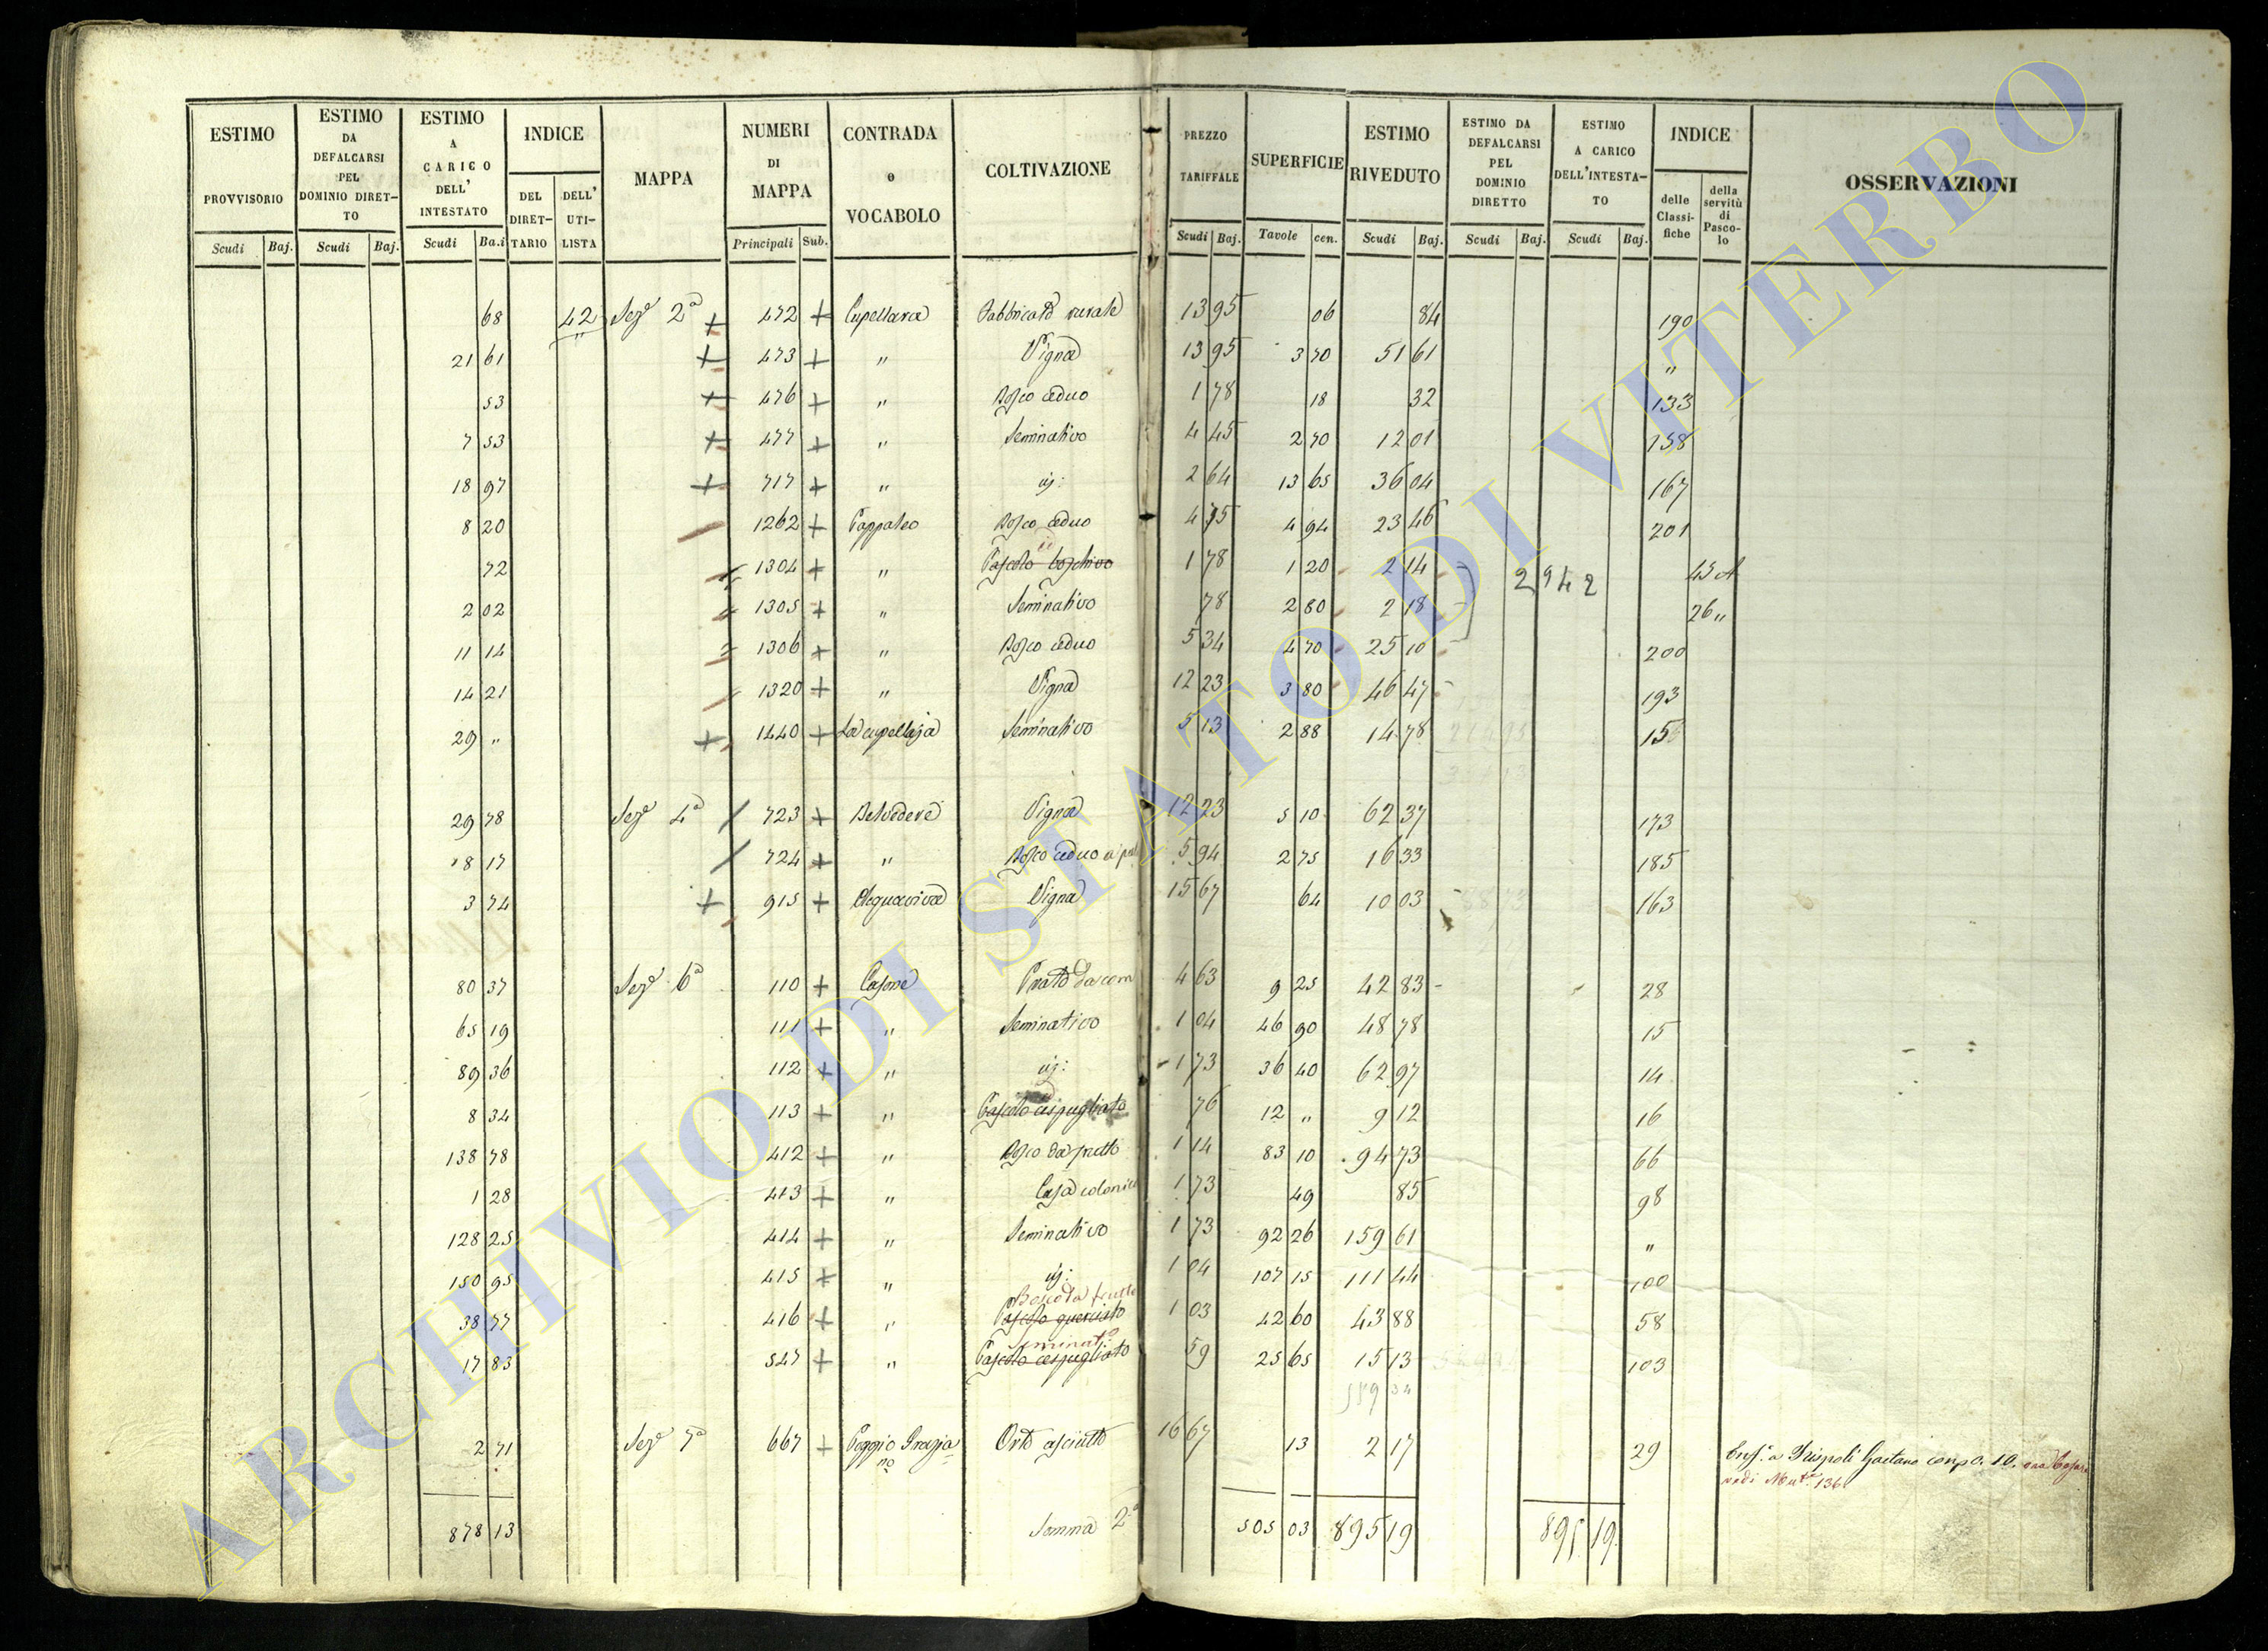 ESTIMO PROVVISORIO Scudi Baj. ESTIMO DA DEFALCARSI PEL DOMINIO DIRET- TO Scudi Baj. ESTIMO A CARICO DELL' INTESTATO Scudi Ba.i INDICE DEL DIRET- TARIO DELL' UTI- LISTA MAPPA NUMERI DI MAPPA Principali Sub. CONTRADA o VOCABOLO COLTIVAZIONE PREZZO TARIFFALE Scudi Baj. SUPERFICIE Tavole cen. ESTIMO RIVEDUTO Scudi Baj. ESTIMO DA DEFALCARSI PEL DOMINIO DIRETTO Scudi Baj. ESTIMO A CARICO DELL'INTESTA- TO Scudi Baj. INDICE delle Classi- fiche della servitù di Pasco- lo OSSERVAZIONI
68 42 Sez.e 2a + 472 + Cupellara Fabbricato rurale 13 95 06 84 190
21 61 + 473 + " Vigna 13 95 3 70 51 61 "
53 + 476 + " Bosco ceduo 1 78 18 32 133
7 53 + 477 + " Seminativo 4 45 2 70 12 01 158
18 97 + 717 + " 2 64 13 65 36 04 167
8 20 1262 + Pappaleo Bosco ceduo 4 75 4 94 23 46 201
72 1304 + " Pascolo boschivo 1 78 1 20 2 14 2942 45 A
2 02 1305 + " Seminativo 78 2 80 2 18 26 "
11 14 1306 + " Bosco ceduo 5 34 4 70 25 10 200
14 21 1320 + " Vigna 12 23 3 80 46 47 193
29 " + 1440 + La cupellaja Seminativo 5 13 2 88 14 78 15
29 78 Sez.e 4a / 723 + Belvedere Vigna 12 23 5 10 62 37 173
8 17 / 724 + " Bosco ceduo 5 94 2 75 16 33 185
3 74 + 915 + Acquaviva Vigna 15 67 64 10 03 163
80 37 Sez.e 6a 110 + Casone Prato da 4 63 9 25 42 83 28
65 19 111 + " Seminativo 1 04 46 90 48 78 15
89 36 112 + " 1 73 36 40 62 97 14
8 34 113 + " Pascolo cespugliato 76 12 " 9 12 16
138 78 412 + " Bosco da frutto 1 14 83 10 94 73 66
1 28 413 + " Casa colonica 1 73 49 85 98
128 25 414 + " Seminativo 1 73 92 26 159 61 "
150 95 415 + " 1 04 107 15 111 44 100
Bosco da frutto
38 77 416 + " Pascolo querciato 1 03 42 60 43 88 58
Seminat.o
17 83 547 + " Pascolo cespugliato 59 25 65 15 13 103
2 71 Sez.e 7a 667 + Poggio Grazia no Orto asciutto 16 67 13 2 17 29 a Gaetano
vedi Mut.e 136
878 13 Somma 2a 505 03 895 19 895 19
ARCHIVIO DI STATO DI VITERBO